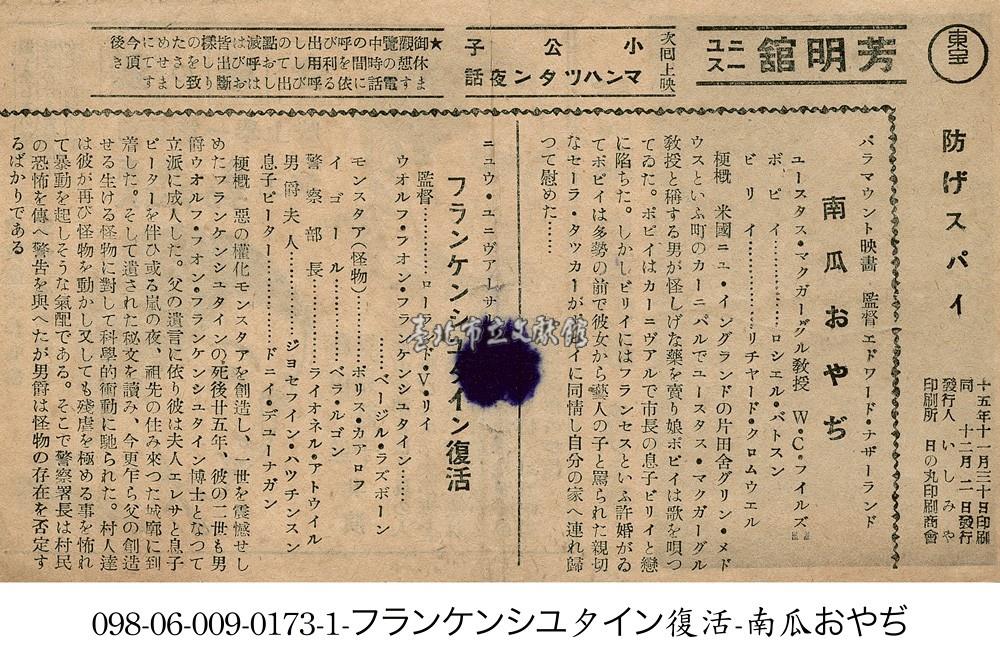 東宝
防げスパイ
十五年十一月三十日印刷
同 十二月二日發行
發行人 いしみや
印刷所 日の丸印刷商會
芳明館
ユニース
次囘上映
小公子
マンハツタン夜話
★御觀覽中の呼び出しの點滅は皆樣のために今後
休憩の時間を利用しておて呼び出しをさせて頂き
ます電話に依る呼び出しはお斷り致します
パラマウント映畫 監督 エドワード・ナザーランド
南瓜おやぢ
ユースタス・マクガーグル教授 W・C・フイルズ
ポピイ……………ロシエル・ハトスン
ビリイ……………リチヤード・クロムウエル
梗概 米國ニュ・イングランドの片田舍グリン・メド
ウスといふ町のカーニバルでユースタス・マクガーグル
教授と稱する男が怪しげな藥を賣り娘ポピイは歌を唄つ
てゐた。ポピイはカーニヴアルで市長の息子ビリイと戀
に陷ちた。しかしビリイにはフランセスといふ許婚がゐ
てポピイは多勢の前で彼女から藝人の子と罵られた親切
なセーラ・タツカーが イに同情し自分の家へ連れ歸
つて慰めた……
ニユウ・ユニヴアーサ
フランケンシユタイン復活
監督………ローランド・V・リイ
ウオルフ・フオン・フランケンシユタイン……
………ベージル・ラズボーン
モンスタア(怪物)……ボリス・カアロフ
イゴール……………ベラ・ルゴシ
警察部長……………ライオネル・アトウイル
男爵夫人……………ジヨセフイン・ハツチンスン
息子ピーター……………ドニイ・デユーナガン
梗概 惡の權化モンスタアを創造し、一世を震憾せし
めたフランケンシユタインの死後廿五年、彼の二世も男
爵ウオルフ・フオン・フランケンシユタイン博士となつて
立派に成人した。父の遺言に依り彼は夫人エレサと息子
ピーターを伴ひ或る嵐の夜、祖先の住み來つた城廓に到
着した。そして遺された秘文を讀み、今更乍ら父の創造
せる生ける怪物に對して科學的衝動に馳られた。村人達
は彼が再び怪物を動かし又しても殘虐を極める事を怖れ
て暴動を起しそうな氣配である。そこで警察署長は村民
の恐怖を傳へ警告を與へたが男爵は怪物の存在を否定す
るばかりである
臺北市立文獻館
098-06-009-0173-1-フランケンシユタイン復活-南瓜おやぢ